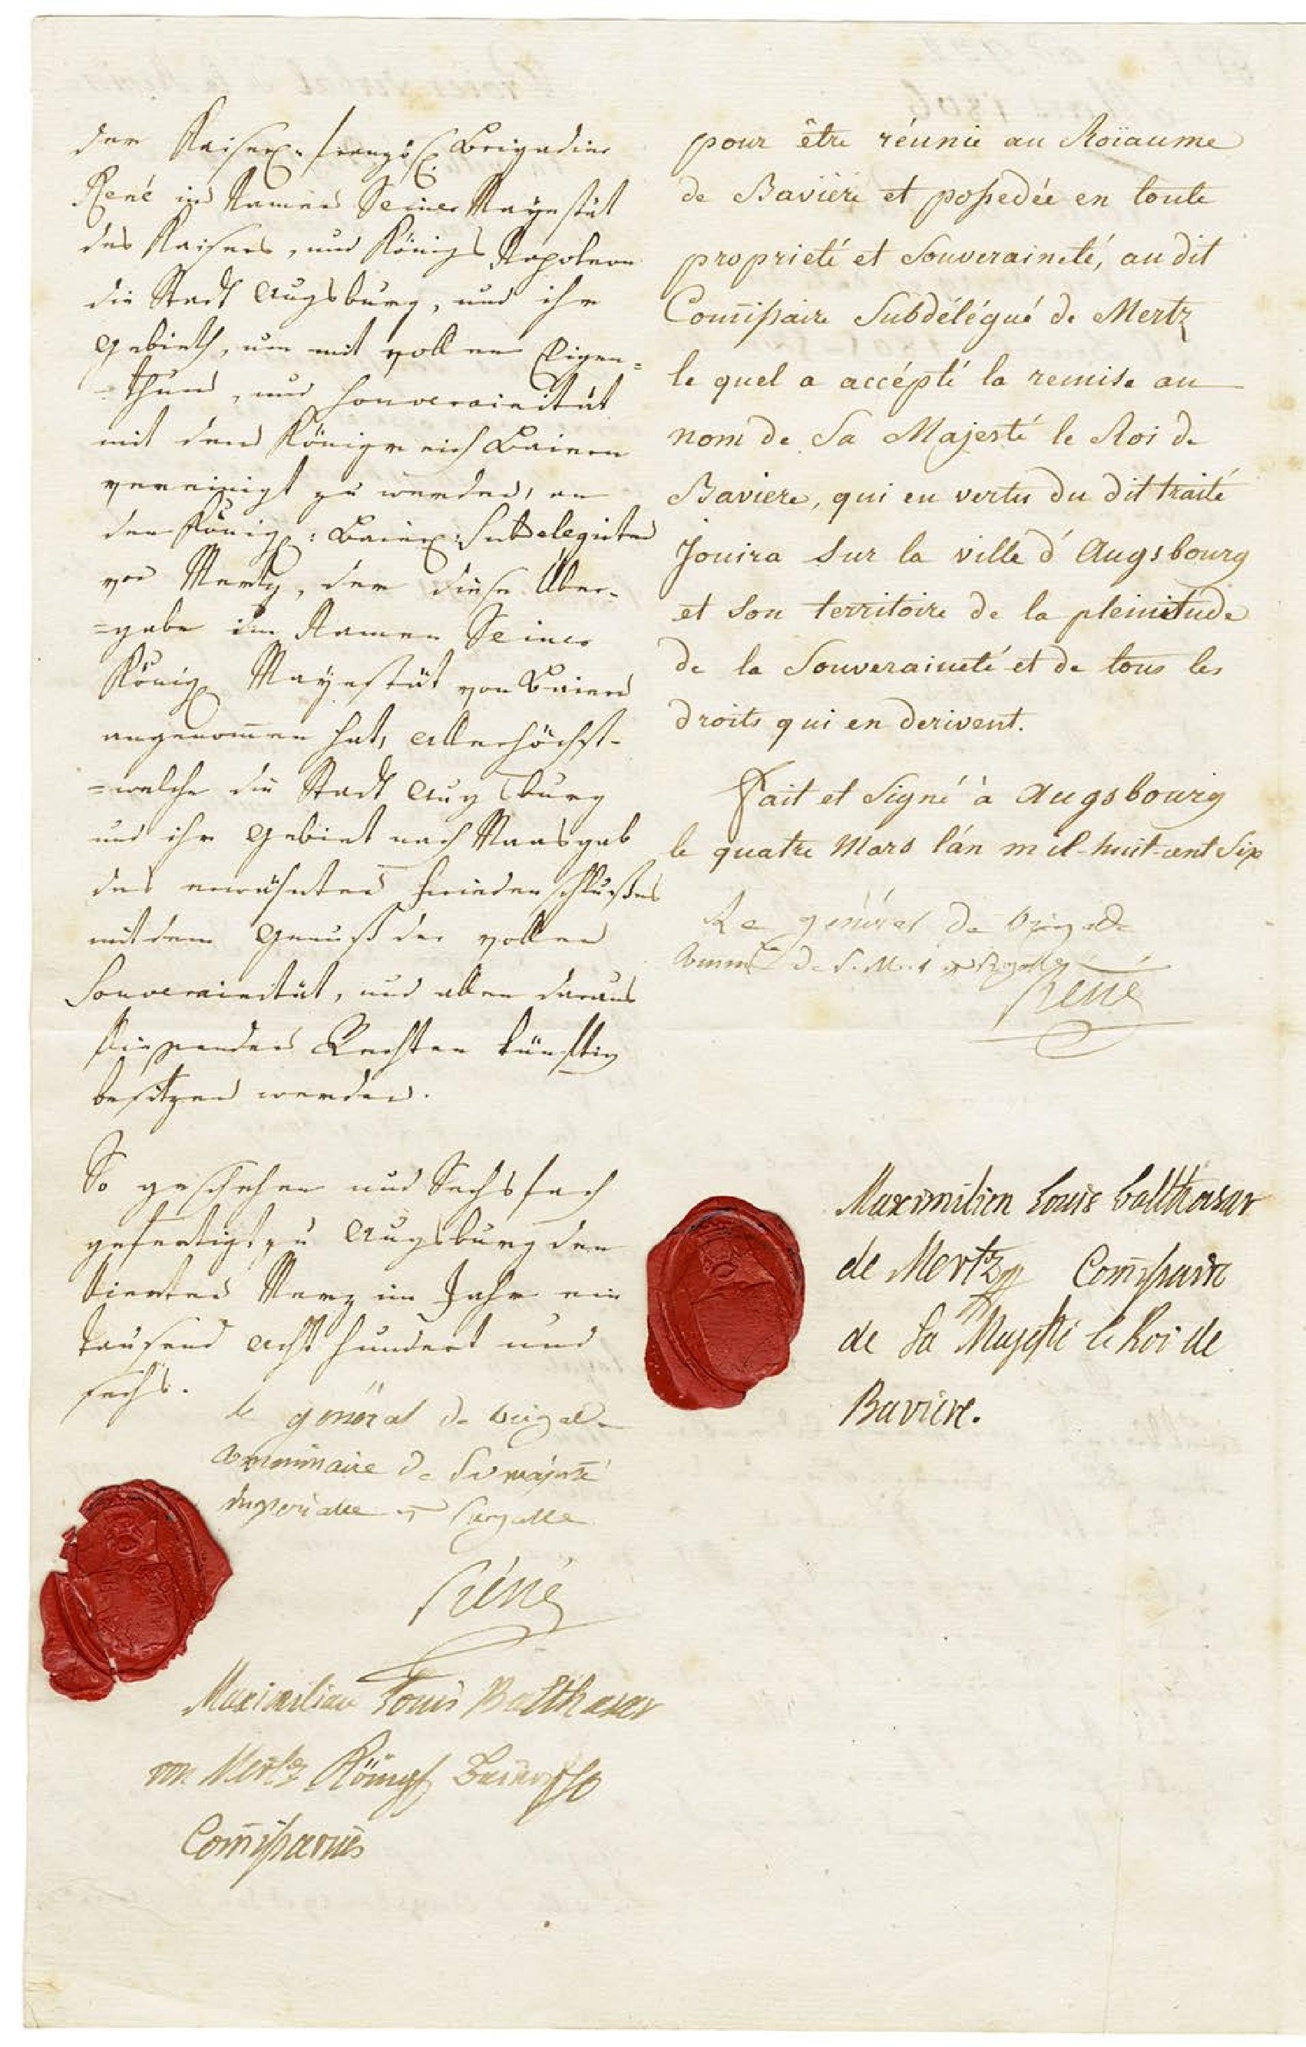 der Kaiserl. französ. Brigadier
René im Namen Seiner Mayestät
des Kaisers, und Königs Napoleon
die Stadt Augsburg, und ihr
Gebieth, um mit vollem Eigen=
=thum, und Souverainität
mit dem Königreich Baiern
vereinigt zu werden, an
den Königl: Baier: Subdelegirten
von Mertz, der diese Über=
=gabe im Namen Seiner
Königl. Mayestät von Baiern
angenom̄en hat, Allerhöchst=
=welche die Stadt Augsburg
und ihr Gebiet nach Maasgab
des erwähnten Friedenschlußes
mit dem Genuß der vollen
Souverainität, und allen daraus
fliessenden Rechten künftig
besitzen werden.
So geschehen und Sechsfach
gefertigt zu Augsburg den
Vierten Merz im Jahr ein
tausend acht hundert und
sechs.
le général de brigade
Commissaire de Sa majesté
Imperialle et Royalle
René
Maximilian Louis Balthasar
von Mertz Königl Baierischer
Com̄issarius
pour être réunie au Roïaume
de Bavière et possedée en toute
proprieté et Souveraineté, au dit
Com̄issaire Subdélégué de Mertz
le quel a accépté la remise au
nom de Sa Majesté le Roi de
Baviere, qui en vertu du dit traité
Jouira Sur la ville d'Augsbourg
et Son territoire de la plenitude
de la Souveraineté et de tous les
droits qui en derivent.
Fait et Signé à Augsbourg
le quatre Mars l'an mil-huit-cent Six
Le général de brigade
Commre de S. M. I et Royalle
René
Maximilien Louis balthasar
de Mertz Com̄issaire
de Sa Majesté le Roi de
Bavière.